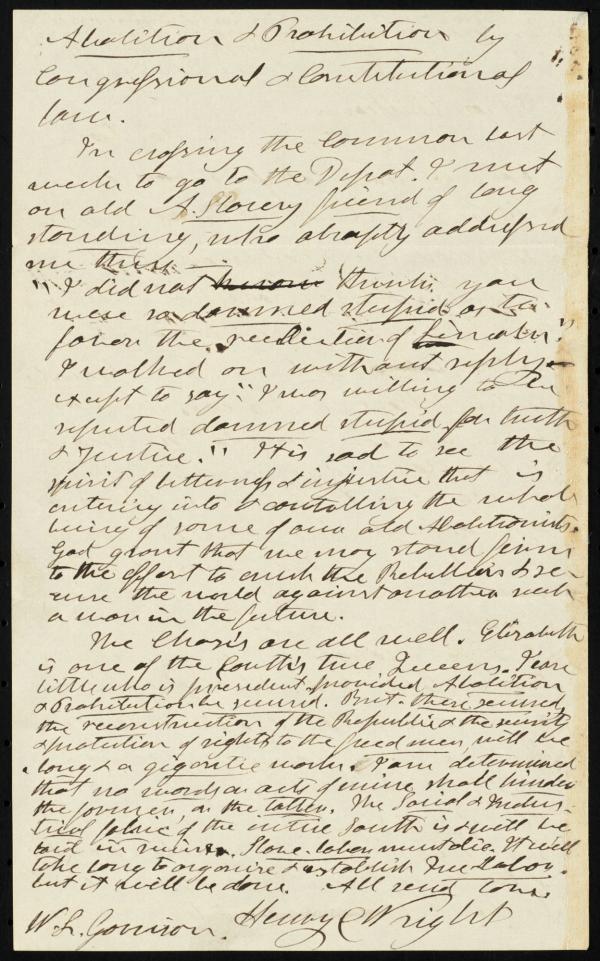 Abolition & Prohibition by
Congressional & Constitutional
law.
In crossing the Common last
week to go to the Depot. I met
an old A. Slavery friend of long
standing, who abruptly addressed
me thus —
"I did not think you
were so damned stupid as to
favor the reelection of Lincoln."
I walked on without reply —
except to say "I was willing to be
reputed damned stupid for truth
& Justice." It is sad to see the
spirit of bitterness & injustice that is
entering into & controlling the whole
being of some of our old Abolitionists.
God grant that we may stand firm
to the effort to crush the Rebellion & se-
cure the world against another such
a war in the future.
The Chases are all well. Elizabeth
is one of the Earth's true Queens. I care
little who is president, provided Abolition
& Prohibition be secured. But these secured,
the reconstruction of the Republic & the security
& protection of rights to the freed men, will be
long & a gigantic work. I am determined
that no words or acts of mine shall hinder
the former or the latter. The Social & Indus-
trial fabric of the entire South is & will be
laid in ruins. Slave labor must die. It will
take long to organize & establish Free labor.
but it will be done. All send love.
Henry C Wright
W. L. Garrison.